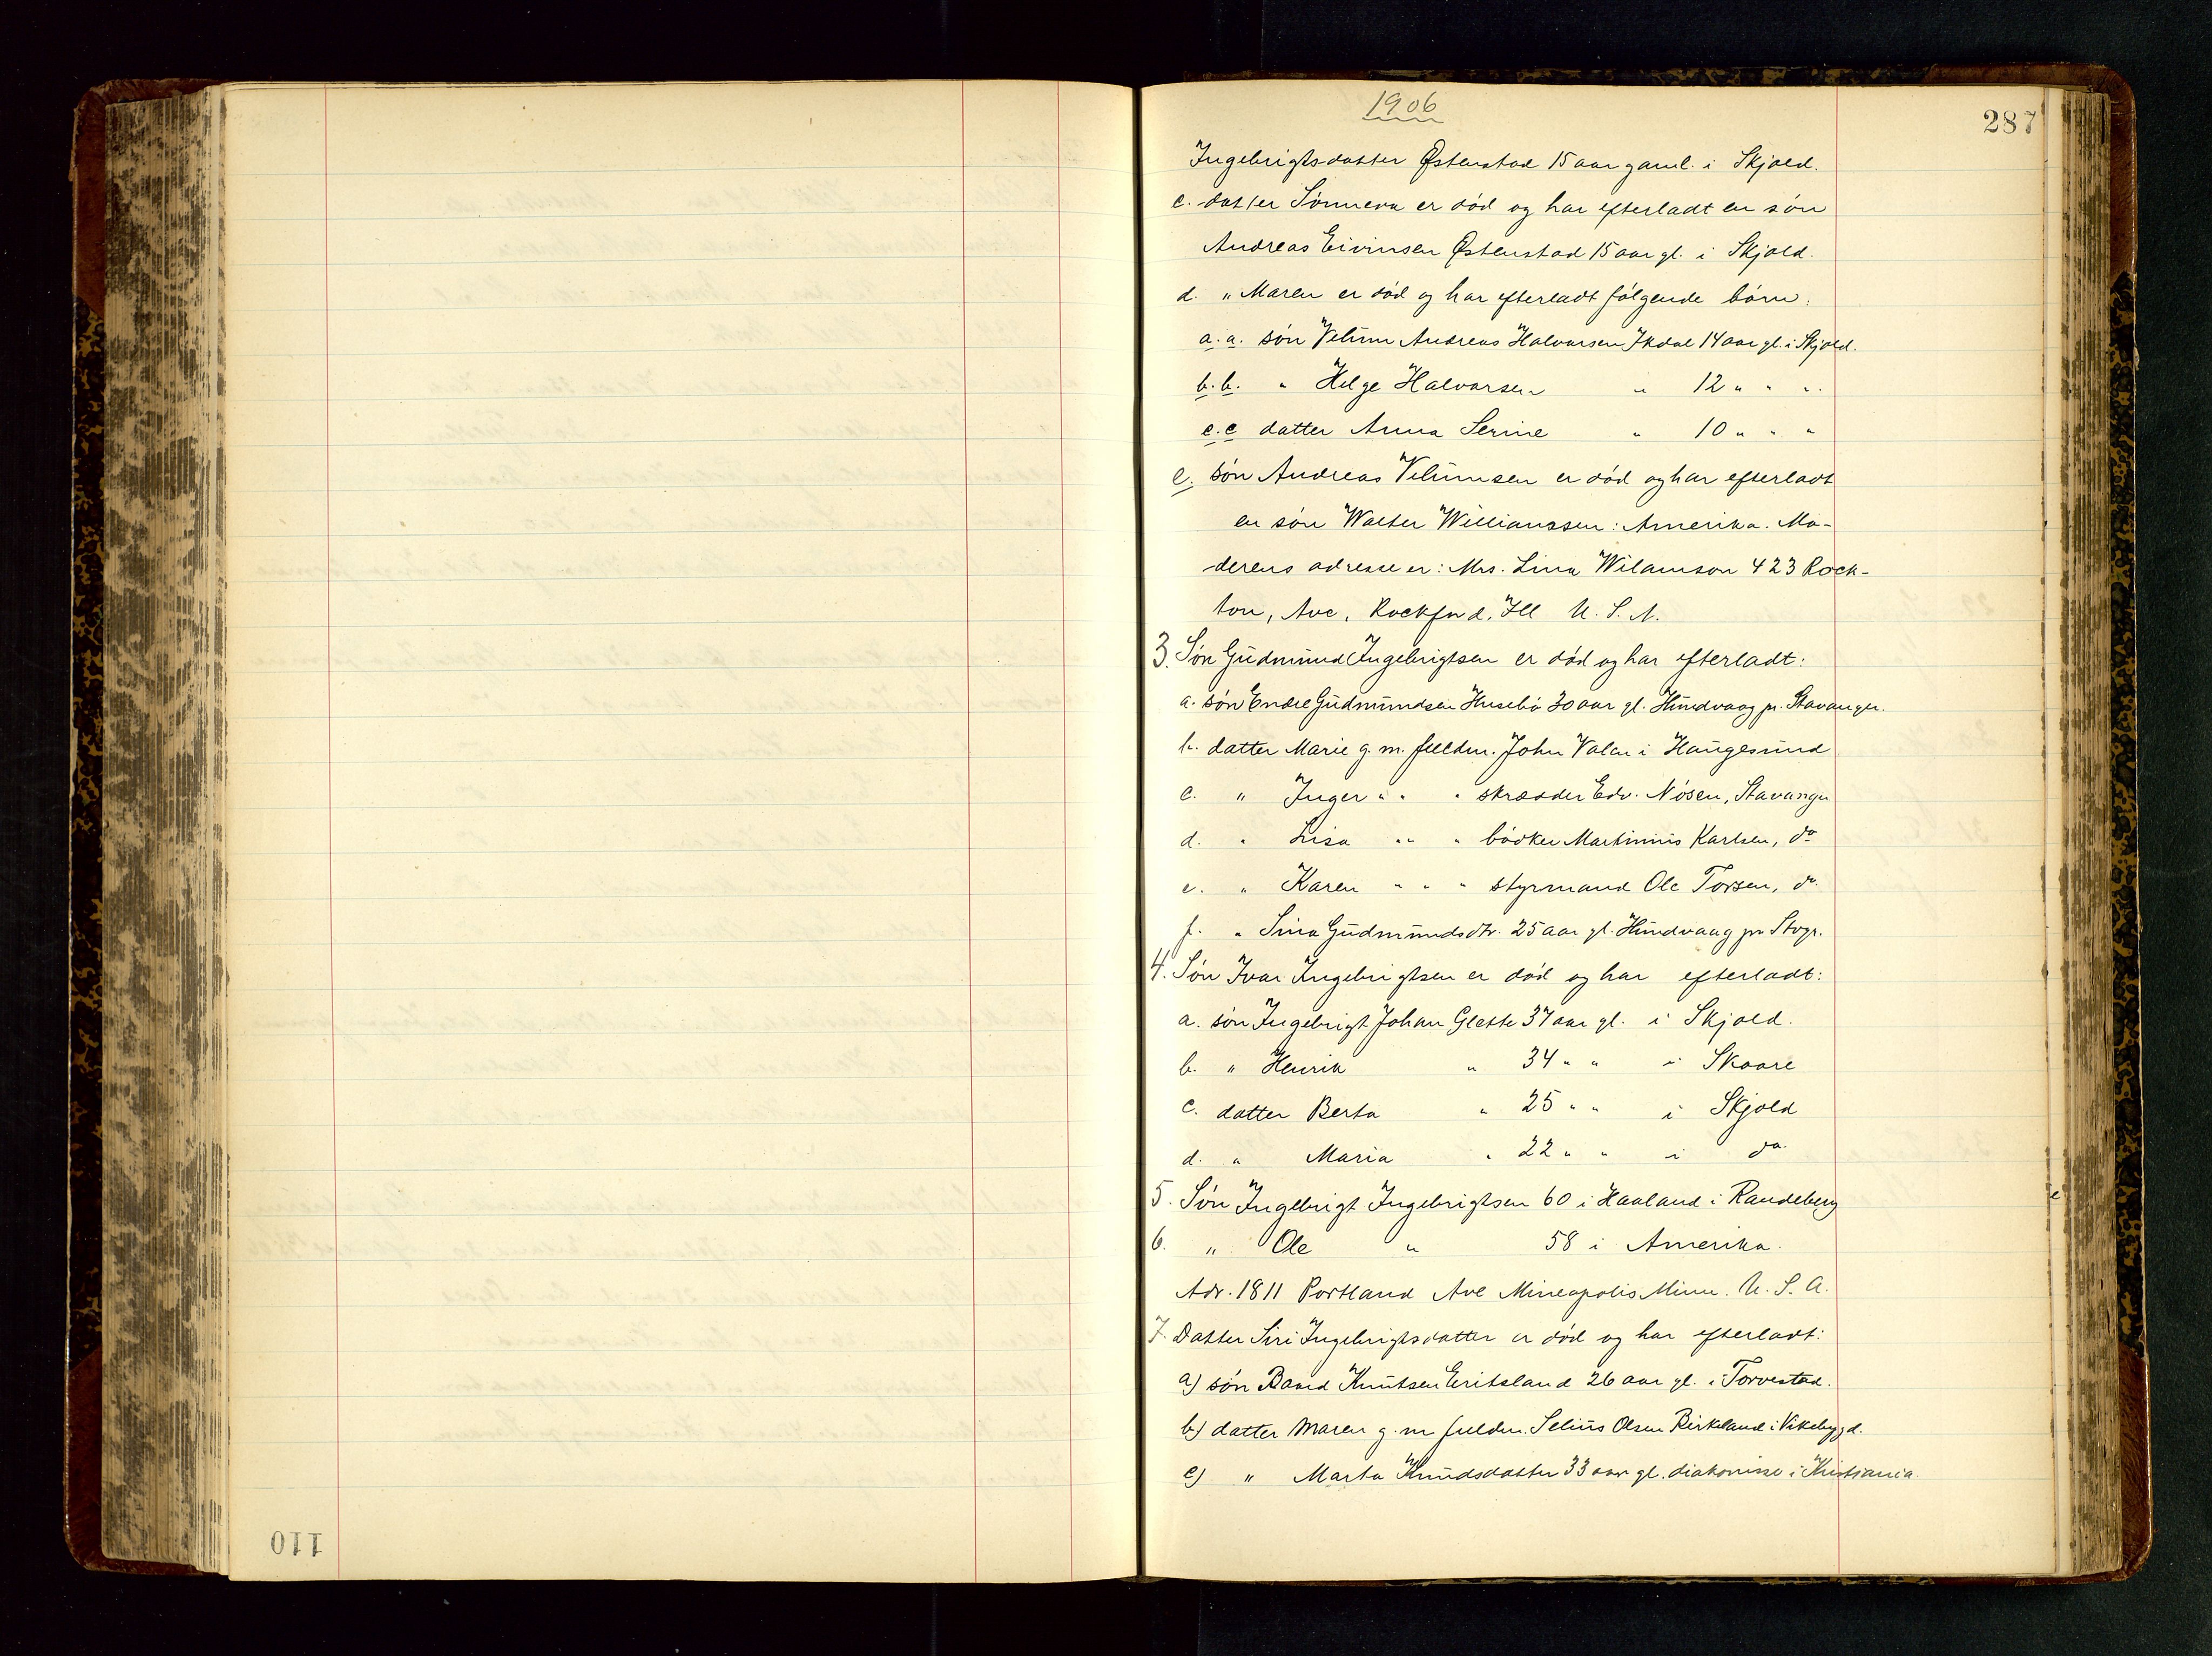 1906
287
Ingebrigtsdatter Østenstad 15 aar gaml. i Skjold.
c. datter Sønneva er død og har efterladt en søn
Andreas Eivinsen Østenstad 15 aar gl. i Skjold.
d. " Maren er død og har efterladt følgende børn:
a.a. søn Velum Andreas Halvorsen Ikdal 14 aar gl. i Skjold.
b.b. " Helge Halvorsen " 12 " " ".
c.c datter Anna Serine " 10 " " "
e. søn Andreas Velumsen er død og har efterladt
en søn Walter Williamssen: Amerika. Mo-
derens adresse er: Mrs. Lina Wilamson 423 Rock-
ton, Ave, Rockford, Ill U. S. A.
3. Søn Gudmund Ingebrigtsen er død og har efterladt:
a. søn Endre Gudmundsen Husebø 30 aar gl. Hundvaag pr. Stavanger.
b. datter Marie g. m. fuldm. John Valen i Haugesund
c. " Inger " " " skrædder Edv. Nøsen, Stavanger
d. " Lisa " " " bødker Martinius Karlsen, do
e. " Karen " " " styrmand Ole Torsen, do.
f. " Sina Gudmundsdtr. 25 aar gl. Hundvaag pr Stvgr.
4. Søn Ivar Ingebrigtsen er død og har efterladt:
a. søn Ingebrigt Johan Glette 37 aar gl. i Skjold.
b. " Henrik " 34 " " i Skaare
c. datter Berta " 25 " " i Skjold
d. " Maria " 22 " " i do.
5. Søn Ingebrigt Ingebrigtsen 60 i Haaland i Randeberg
6. " Ole " 58 i Amerika.
Adr. 1811 Portland Ave Mineapolis Minn. U. S. A.
7. Datter Siri Ingebrigtsdatter er død og har efterladt:
a) søn Baard Knutsen Eritsland 26 aar gl. i Torvestad.
b) datter Maren g. m fuldm. Selius Olsen Birkeland i Vikebygd.
c) " Marta Knudsdatter 33 aar gl. diakonisse i Kristiania.
110